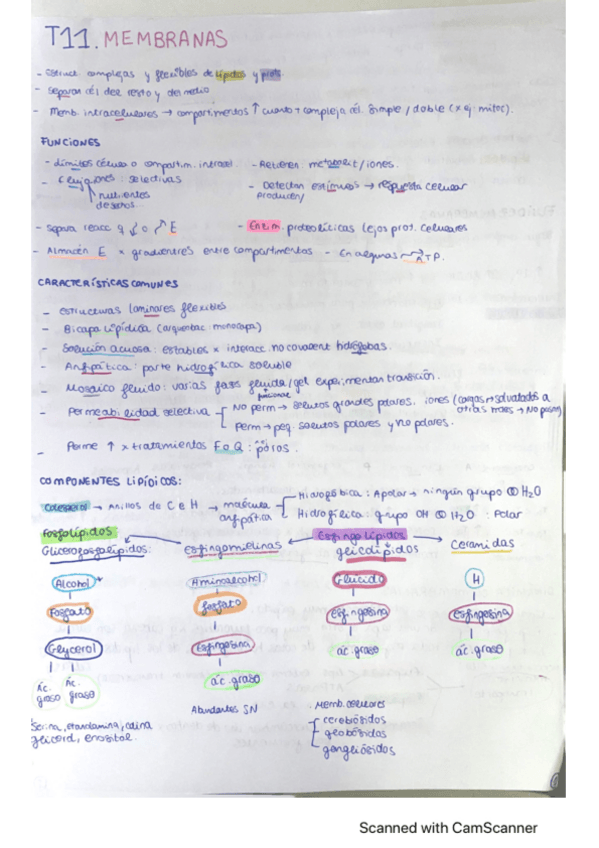 T11. MEMBRANAS
- Estruct. complejas y flexibles de lípidos y prots.
- Separan cél del resto y del medio
- Memb. intracelulares → compartimentos ↑ cuanto + compleja cél. Simple/doble (x ej: mitoc).
FUNCIONES
- Límites célula o compartim. intracel.
- Retienen metabolit/iones.
- Flujo iones: selectivas
nutrientes
desechos
- Detectan estímulos → respuesta celular
producen
- Separa reacc q ↓ o ↗ E
- Enzim. proteolíticas lejos prot. celulares
- Almacén E x gradientes entre compartimentos
- En algunas → ATP.
CARACTERÍSTICAS COMUNES
- Estructuras laminares flexibles
- Bicapa lipídica (arqueobac. monocapa)
- Solución acuosa: estables x interacc. no covalent hidrófobas.
- Anfipática: parte hidrofílica soluble
- Mosaico fluido: varias fases fluida/gel experimentan transición.
- Permeabilidad selectiva
No perm → solutos grandes polares. iones (cargas → solvatados a
otras → No pasan)
Perm → peq. solutos polares y no polares.
- Perme ↑ x tratamientos F o Q : poros.
COMPONENTES LIPÍDICOS:
Colesterol → Anillos de C e H → molécula anfipática
Hidrofóbica: Apolar → ningún grupo H2O
Hidrofílica: grupo OH H2O : Polar
Fosfolípidos
Esfingolípidos
Glicerofosfolípidos:
Esfingomielinas
glicolípidos
Ceramidas
Alcohol
Aminoalcohol
Glúcido
H
Fosfato
fosfato
Esfingosina
Esfingosina
Glycerol
Esfingosina
ác. graso
ác. graso
Ác. graso
Ác. graso
ác. graso
Abundantes SN
. Memb. celulares
cerebósidos
globósidos
gangliósidos
Serina, etanolamina, colina
glicerol, inositol.
Scanned with CamScanner